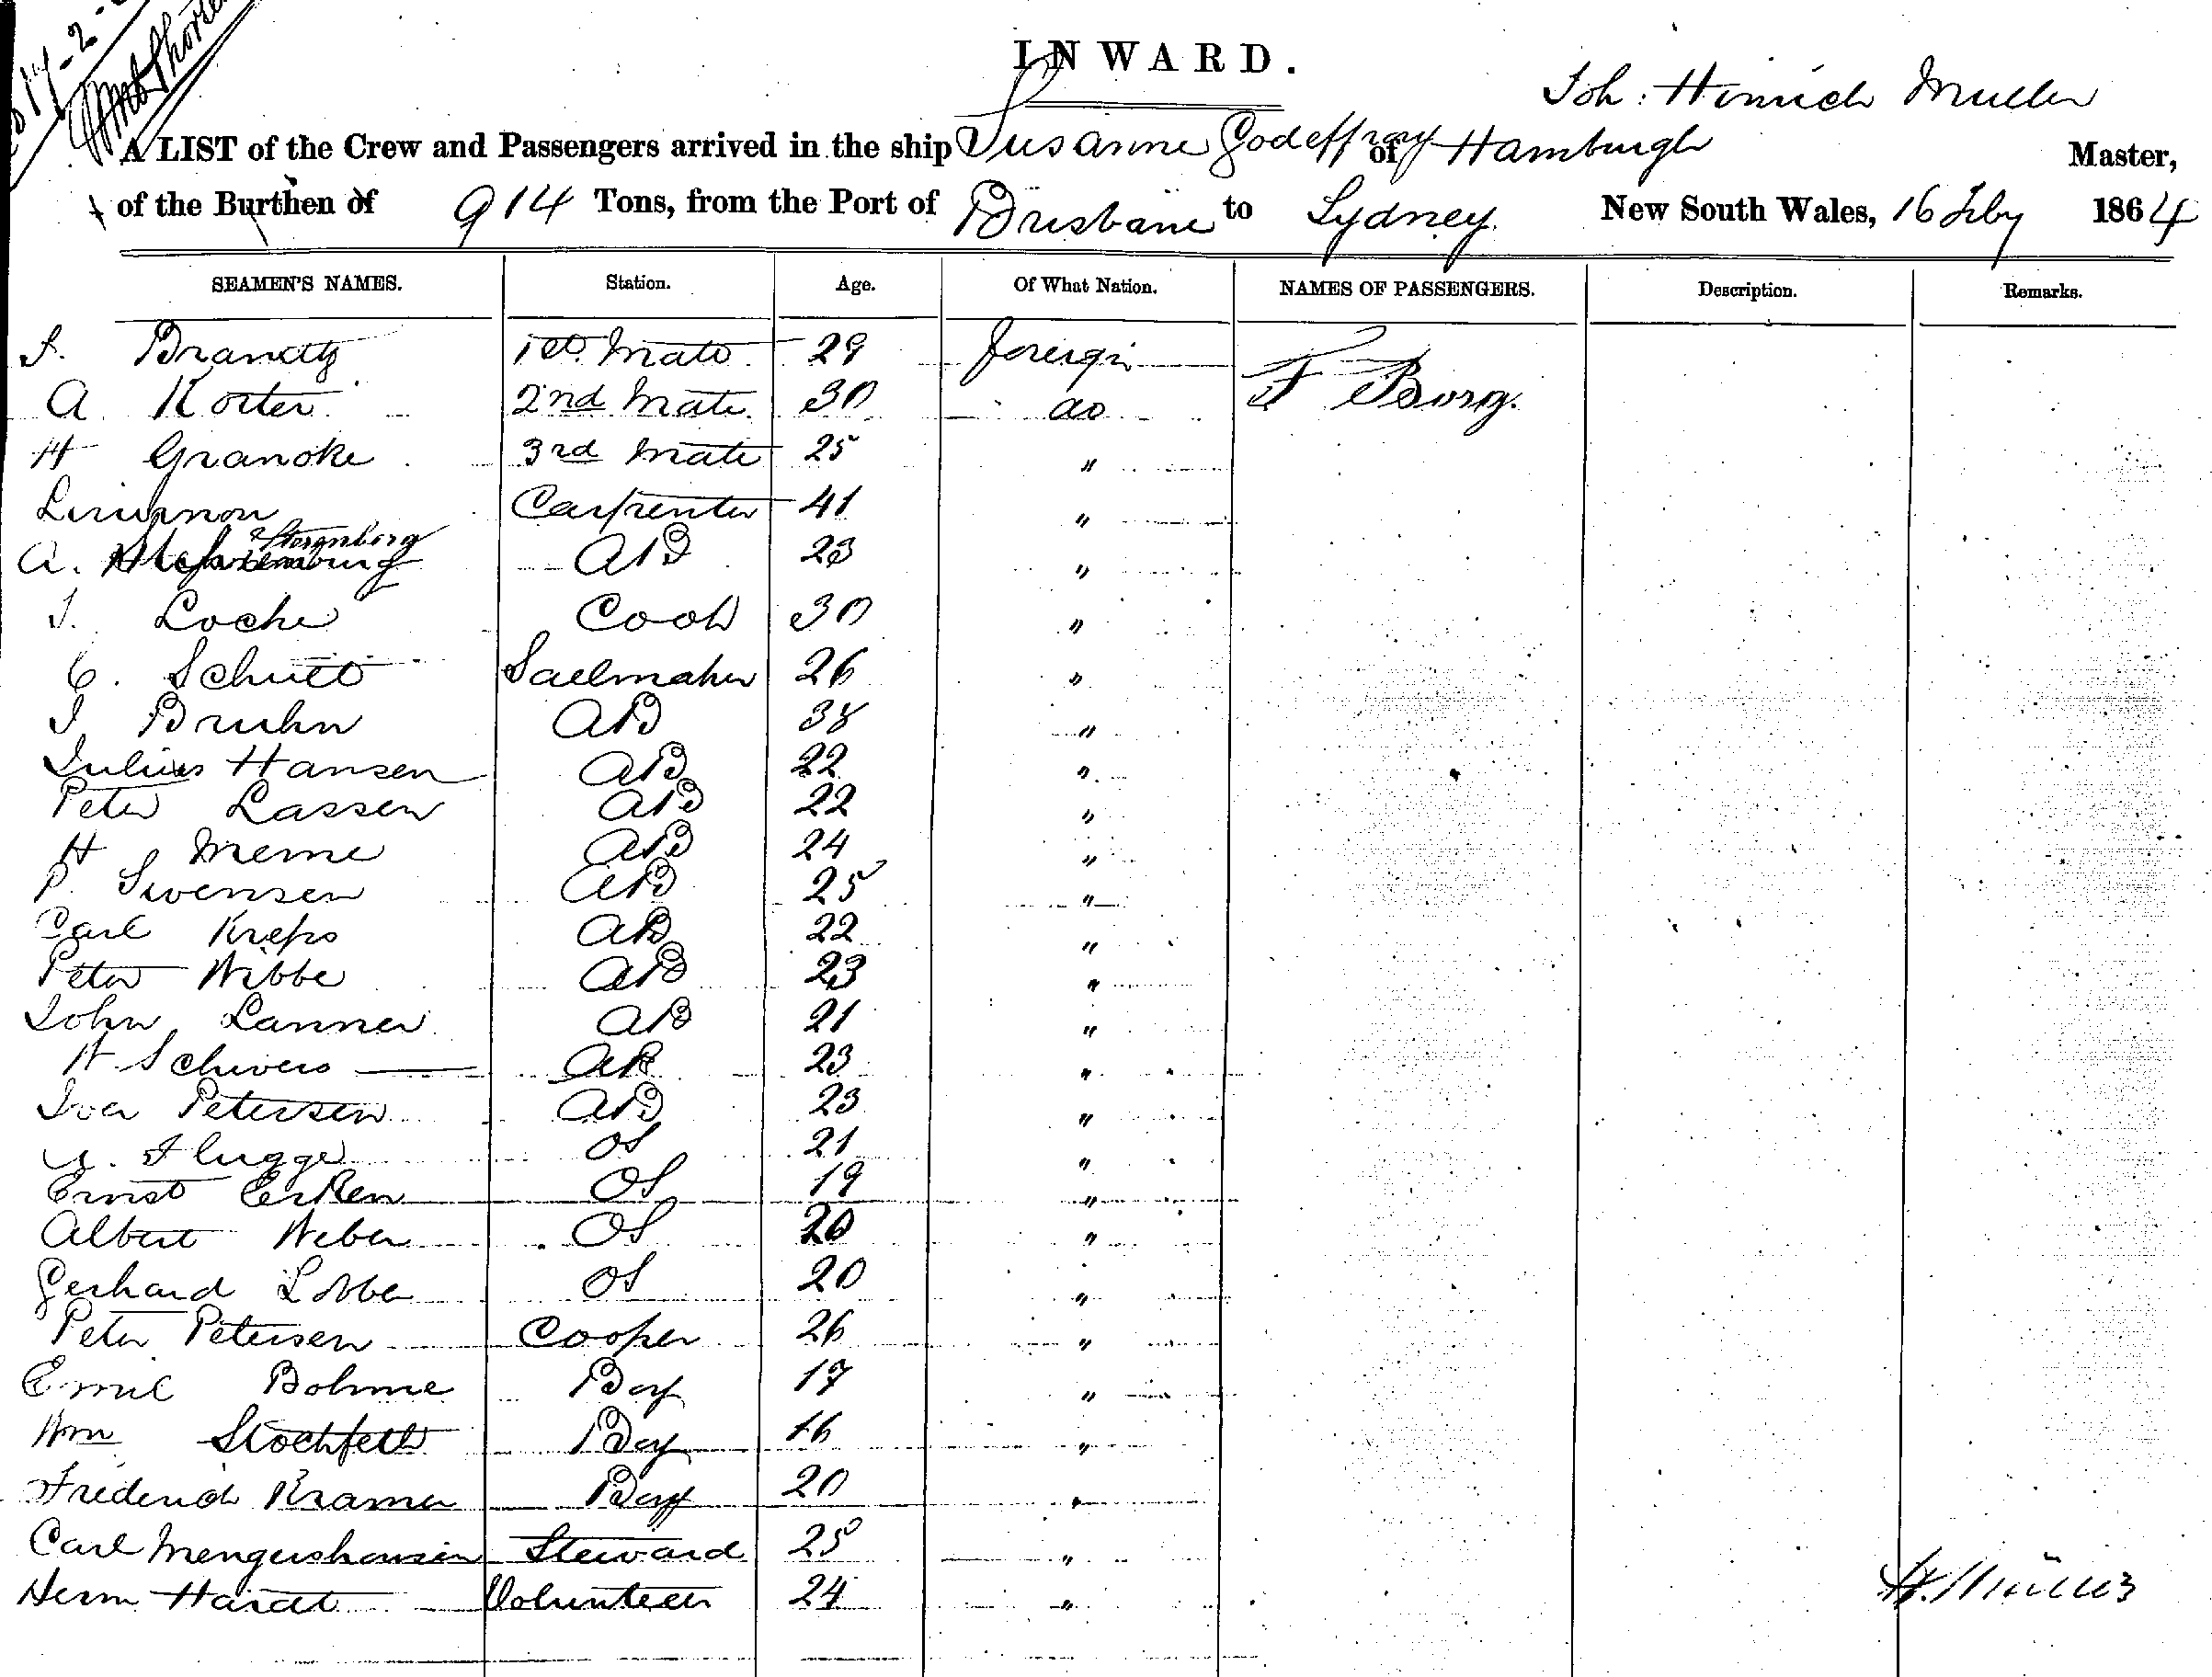 INWARD.
Joh. Hinrich Muller
A LIST of the Crew and Passengers arrived in the ship Susanne Godeffroy of Hamburgh Master,
of the Burthen of 914 Tons, from the Port of Brisbane to Sydney New South Wales, 16 Feby 1864
SEAMEN'S NAMES. Station. Age. Of What Nation. NAMES OF PASSENGERS. Description. Remarks.
J. Brandtz 1st Mate 29 foreign F Borg.
A Korter 2nd Mate 30 do
H Granoke 3rd Mate 25 "
Carpenter 41 "
Sternberg
A. AB 23 "
J. Locke Cook 30 "
C. Schutt Sailmaker 26 "
J Bruhn AB 38 "
Julius Hansen AB 22 "
Peter Lassen AB 22 "
H Meme AB 24 "
P. Swensen AB 25 "
Carl Kreps AB 22 "
Peter Wibbe AB 23 "
John Lanner AB 21 "
H Schwers AB 23 "
Iver Petersen AB 23 "
Flugge OS 21 "
Ernst Eerken OS 19 "
Albert Weber OS 20 "
Gerhard Lobbe OS 20 "
Peter Petersen Cooper 26 "
Emil Bohme Boy 17 "
Wm Stockfeth Boy 16 "
Frederick Kramer Boy 20 "
Carl Mengershausen Steward 25 "
Herm Hardt Volunteer 24 "
H. Müller